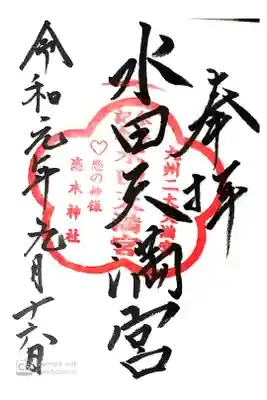 奉拝
九州二大天満宮
水田天満宮
♡恋の神様
恋木神社
令和元年九月十六日